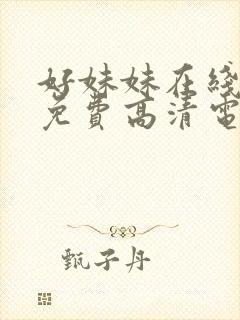 好妹妹在线
免费高清電
甄子丹